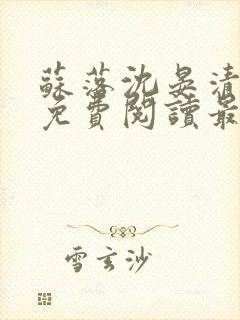 蘇落沈晏清
免費閱讀最
雪玄沙